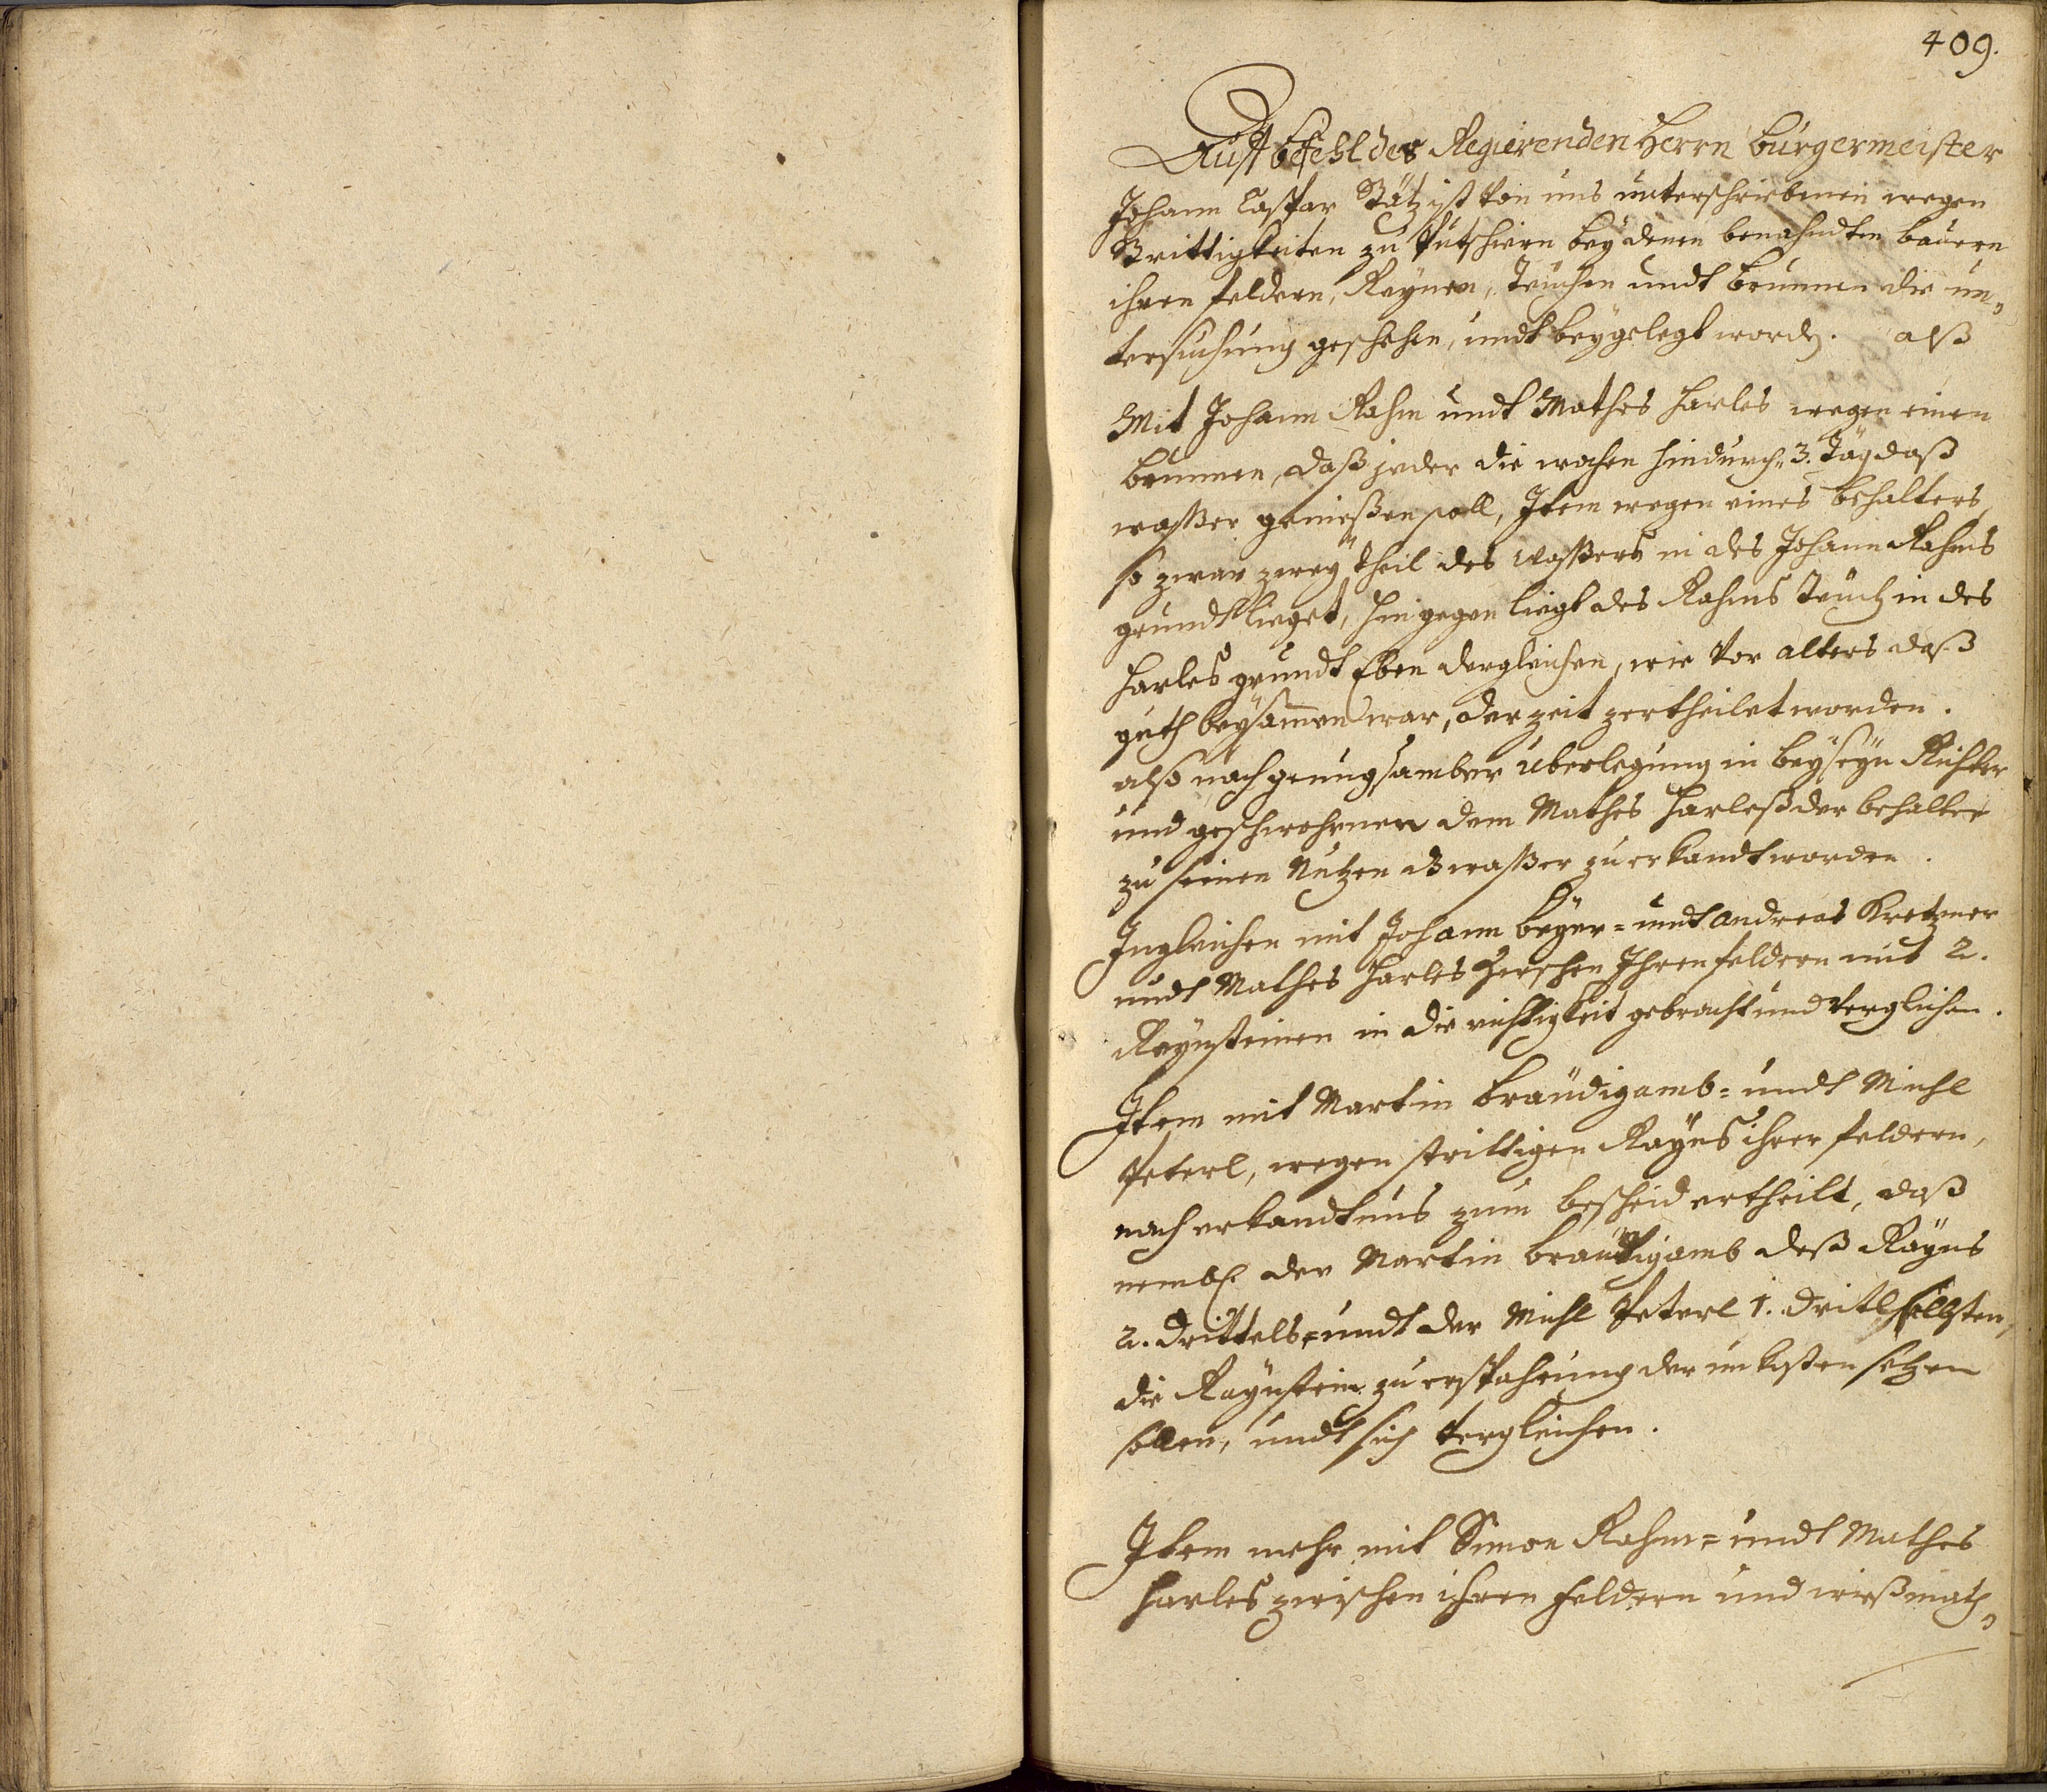 409.
Auff befehl des Regierenden Herrn burgermeister
Johann Caspar Stätz ist von uns unterschriebenen wegen
Strittigkeiten zu bey denen benahndten bauern
ihren feldern, Raynen, Teuchen undt brunnen die un¬
tersuchung geschehen, undt beygelegt worden. alß
Mit Johann Rahm undt Mathes Harles wegen einen
brunnen, daß jeder die wochen hindurch 3. Täg daß
waßer genießen soll, Item wegen eines behalters,
so zwar zwey theil des waßers in des Johann Rahms
grundt lieget, hingegen liegt des Rahms Teuch in des
Harles grundt Eben dergleichen, wie vor alters daß
guth beysamen war, der zeit zertheilet worden.
also nach genugsamber uberlegung in beyseyn Richter
und geschwohrnen dem Mathes Harleß der behalter
zu seinen Nutzen waßer zuerkandt worden.
Ingleichen mit Johann beyer= undt Andreas Kretzmer
undt Mathes Harles Zwischen Ihren feldern mit 2.
Raynsteinen in die richtigkeit gebracht und verglichen.
Item mit Martin bräudigamb= undt Michl
Peterl, wegen strittigen Rayns ihrer feldern,
nach erkandtnus zum bescheid ertheilt, daß
nembl. der Martin bräutigamb deß Rayns
2. drittels= undt der Michl Peterl 1. dritl
die Raynstein zu erspahrung der unkosten setzen
sollen, undt sich vergleichen.
Item mehr mit Simon Rahm= undt Mathes
Harles zwischen ihren feldern und wießmath¬